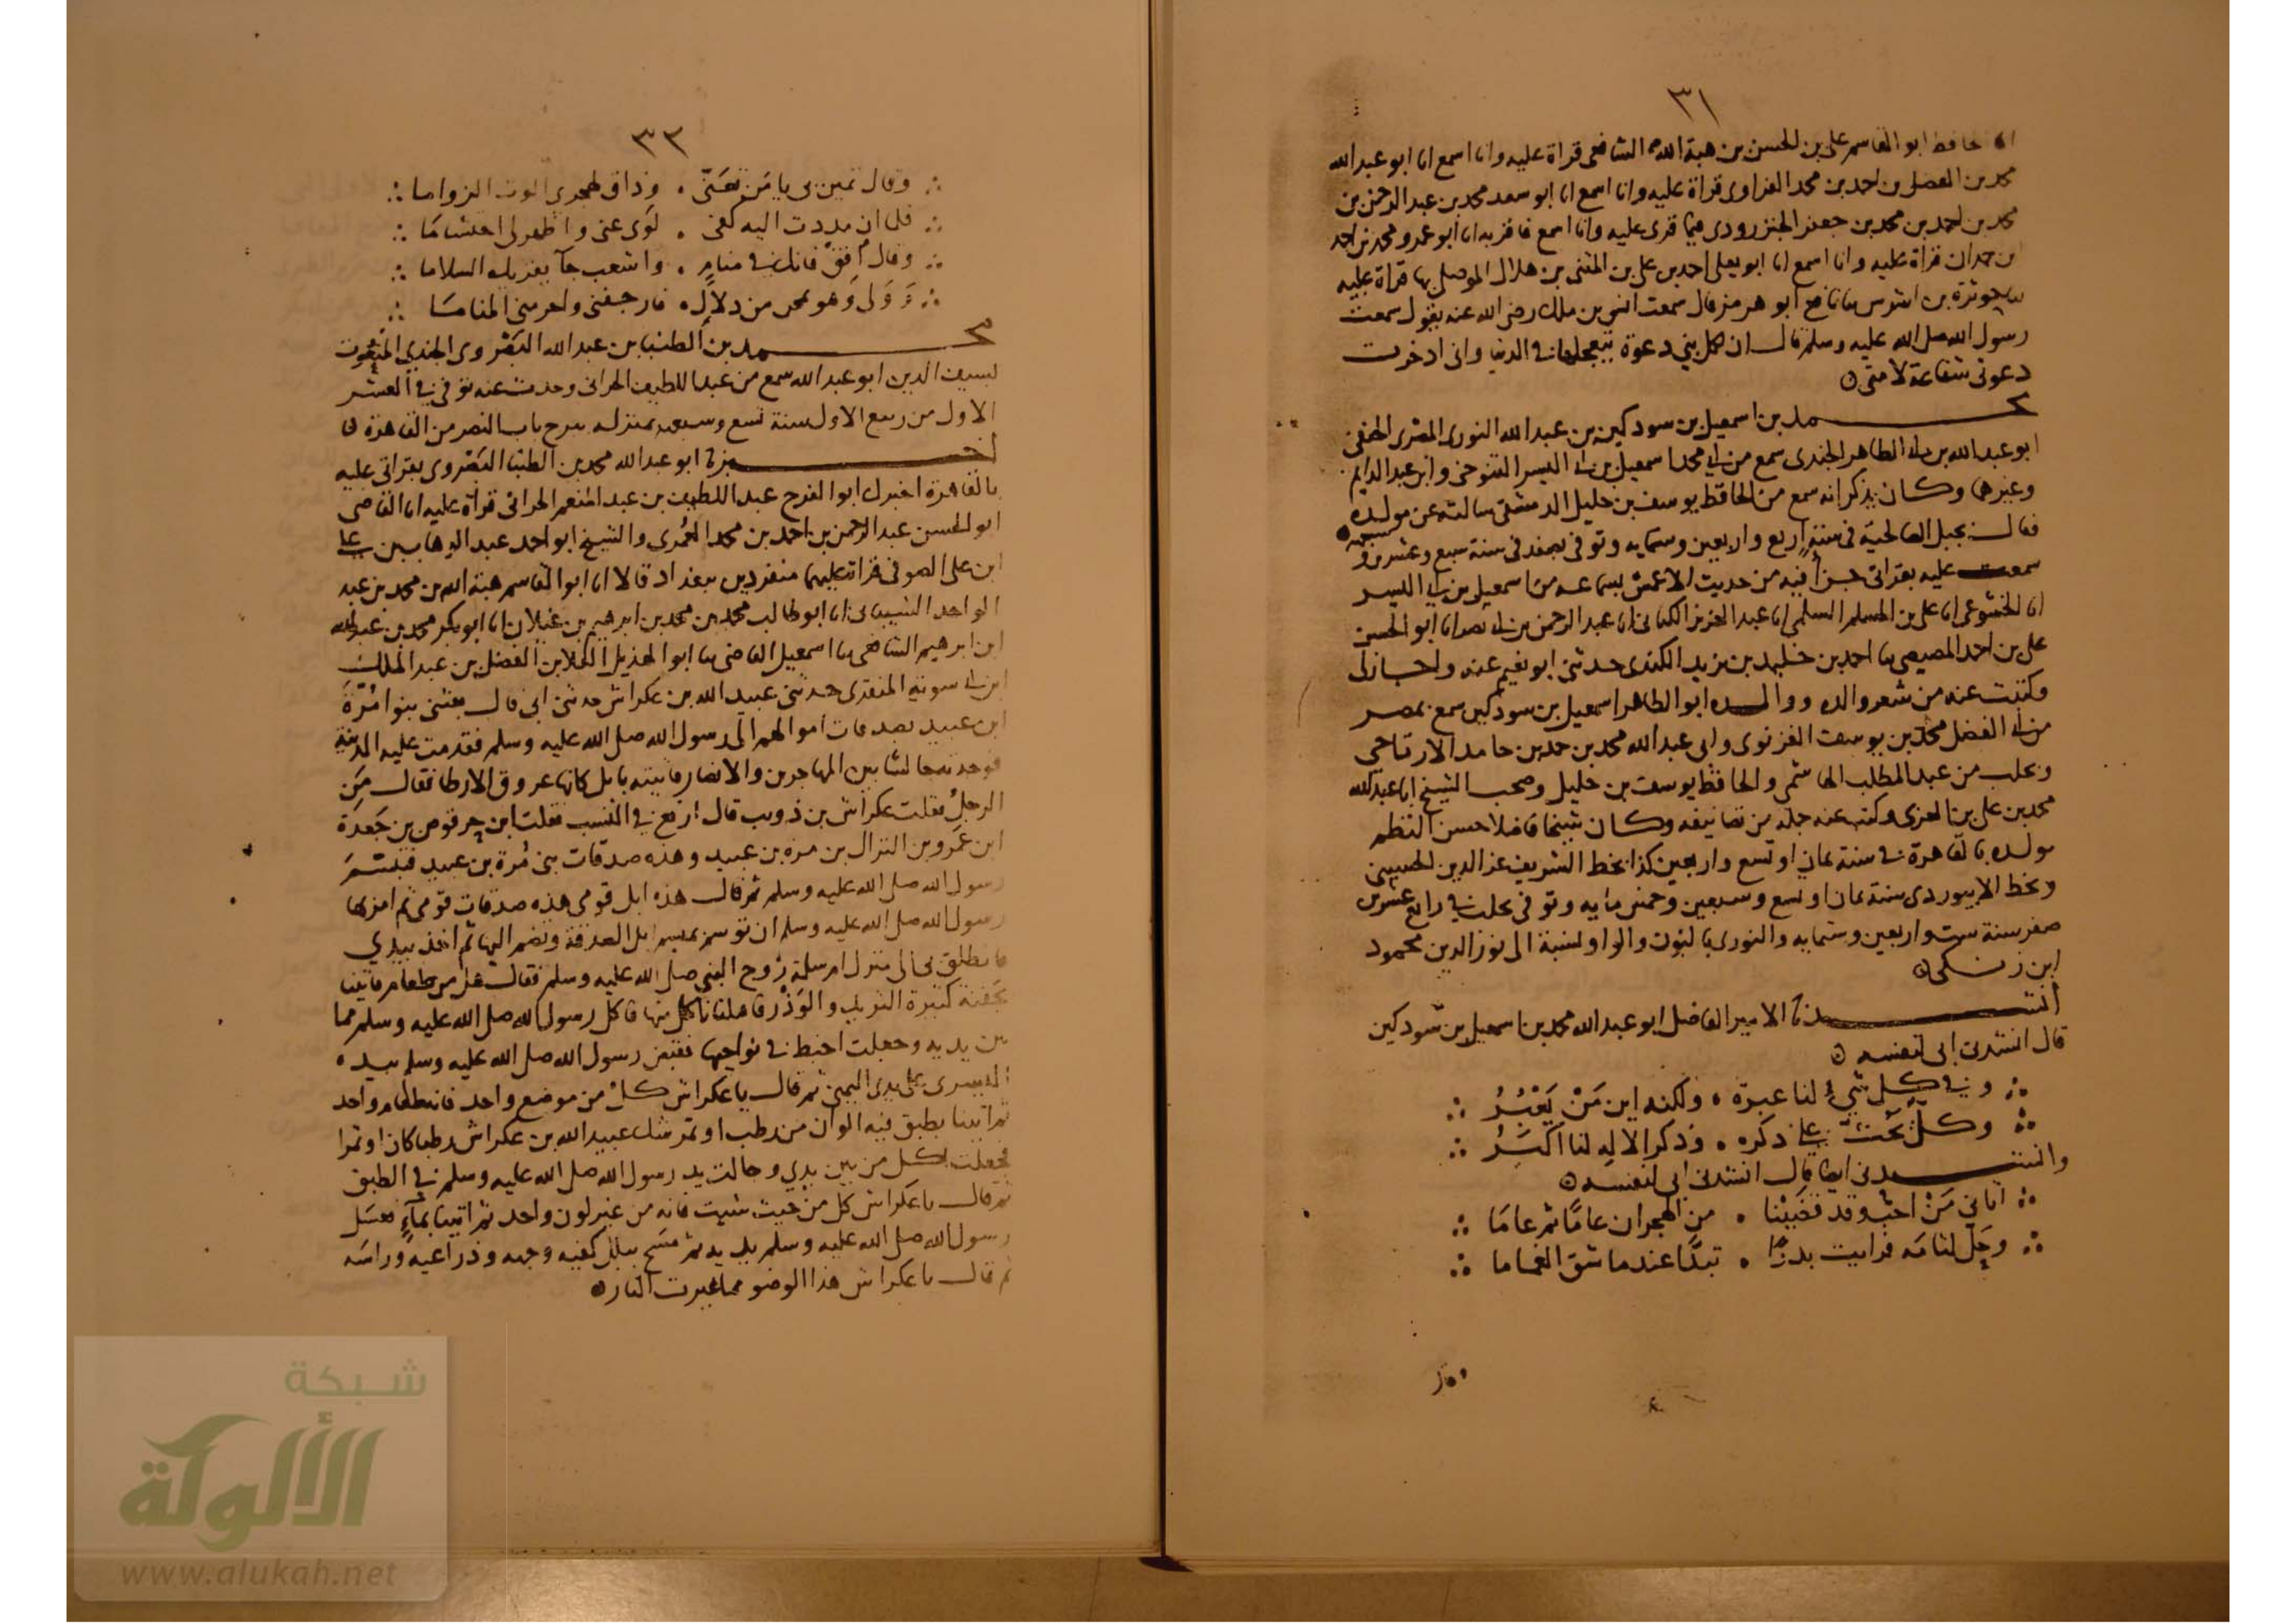 ٣١
الحافظ ابو القاسم على بن الحسن بن هبة الله الشافعى قراة عليه وانا اسمع انا ابو عبد الله
محمد بن الفضل بن احمد بن محمد الفراوى قراة عليه وانا اسمع انا ابو سعد محمد بن عبد الرحمن بن
محمد بن احمد بن محمد بن جعفر الجنزرودى فيما قرى عليه وانا اسمع فاقر به انا ابو عمرو محمد بن احمد
ابن حمدان قراة عليه وانا اسمع انا ابو يعلى احمد بن على بن المثنى بن هلال الموصلى بها قراة عليه
حوثرة بن اشرس نافع ابو هرمز قال سمعت انس بن ملك رضى الله عنه يقول سمعت
رسول الله صلى الله عليه وسلم قال ان لكل نبى دعوة تعجلها فى الدنيا وانى ادخرت
دعوتى شفاعة لامتى
محمد بن اسمعيل بن سودكين بن عبد الله النورى المصرى الحنفى
ابو عبد الله بن ابى الطاهر الجندى سمع من ابى محمد اسمعيل بن ابى اليسر التنوخى وابن عبد الدايم
وغيرهما وكان يذكر انه سمع من الحافظ يوسف بن خليل الدمشقى سالته عن مولده
فقال بجبل الصالحية فى سنة اربع واربعين وستمايه وتوفى بصفد فى سنة سبع وعشرين
سمعت عليه بقراتى جزا فيه من حديث الاعمش بسماعه من اسمعيل بن ابى اليسر
انا الخشوعى انا على بن المسلم السلمى انا عبد العزيز الكتانى انا عبد الرحمن بن ابى نصر انا ابو الحسن
على بن احمد المصيصى احمد بن خليد بن يزيد الكندى حدثنى ابو نعيم عنه واجاز لى
وكتبت عنه من شعر والده ووالده ابو الطاهر اسمعيل بن سودكين سمع بمصر
من ابى الفضل محمد بن يوسف الغزنوى وابى عبد الله محمد بن حمد بن حامد الارتاحى
وبحلب من عبد المطلب الهاشمى والحافظ يوسف بن خليل وصحب الشيخ ابا عبد الله
محمد بن على بن العربى وكتب عنه جملة من تصانيفه وكان شيخا فاضلا حسن النظم
مولده بالقاهرة فى سنة ثمان او تسع واربعين كذا بخط الشريف عز الدين الحسينى
وبخط الابيوردى سنة ثمان او تسع وسبعين وخمس مايه وتوفى بحلب فى رابع عشرين
صفر سنة ست واربعين وستمايه والنورى بالنون والواو نسبة الى نور الدين محمود
ابن زنكى
انشدنا الامير الفاضل ابو عبد الله محمد بن اسمعيل بن سودكين
قال انشدنى ابى لنفسه
∴ وفى كل شىء لنا عبرة ٠ ولكنه اين مَنْ يَعْبُرُ ∴
∴ وكل يحث على ذكره ٠ وذكر الاله لنا اكبَرُ ∴
وانشدنى ايضا قال انشدنى ابى لنفسه
∴ اتانى مَنْ احب وقد تخيبنا ٠ من الهجران عامًا ثم عامَا ∴
∴ وحَلّ لثامَه فرايت بدرًا ٠ تبدَّا عندما شق الغماما ∴
وقال
٣٢
∴ وقال تمن بى يا مَن تعَنّى ٠ وذاق لهجرى الموت الزواما ∴
∴ فلما ان مددت اليه كفى ٠ لَوَى عنى واظهر لى احتشامَا ∴
∴ وقال افِقْ فانك فى منامٍ ٠ واشعب جا يقريك السلاما ∴
∴ وَوَلى وَهو يمرح من دلالٍ ٠ فارجفنى واحرمنى المنامَا ∴
محمد بن الطنبا بن عبد الله البَصْروى الجندى المنعوت
بسيف الدين ابو عبد الله سمع من عبد اللطيف الحرانى وحدث عنه توفى فى العشر
الاول من ربيع الاول سنة تسع وسبعين بمنزله برح باب النصر من القاهرة
اخبرنا ابو عبد الله محمد بن الطنبا البَصْروى بقراتى عليه
بالقاهرة اخبرك ابو الفرج عبد اللطيف بن عبد المنعم الحرانى قراة عليه انا القاضى
ابو الحسن عبد الرحمن بن احمد بن محمد العُمَرى والشيخ ابو احمد عبد الوهاب بن على
ابن على الصوفى قراة عليهما منفردين ببغداد قالا انا ابو القاسم هبة الله بن محمد بن عبد
الواحد الشيبانى انا ابو طالب محمد بن محمد بن ابرهيم بن غيلان انا ابو بكر محمد بن عبد الله
ابن ابرهيم الشافعى اسمعيل القاضى ابو الهذيل العلا بن الفضل بن عبد الملك
ابن ابى سوية المنقرى حدثنى عبيد الله بن عكراش حدثنى ابى قال بعثنى بنو امُرَّة
ابن عبيد بصدقات اموالهم الى رسول الله صلى الله عليه وسلم فقدمت عليه المدينة
فوجدته جالسا بين المهاجرين والانصار فاتيته بابل كانها عروق الارطا فقال مَن
الرجلُ فقلت عكراش بن ذويب قال ارفع فى النسب فقلت ابن حرقوص بن جَعدة
ابن عَمرو بن النزال بن مره بن عبيد وهذه صدقات بنى مُرة بن عبيد فتبسم
رسول الله صلى الله عليه وسلم ثم قال هذه ابل قومى هذه صدقات قومى ثم امر بها
رسول الله صلى الله عليه وسلم ان توسم بميسم ابل الصدقة وتضم اليها ثم اخذ بيدى
فانطلق بى الى منزل ام سلمة زوج النبى صلى الله عليه وسلم فقال هل من طعام فاتينا
بجَفنة كثيرة الثريد والوَذْر فاقبلنا ناكل منها فاكل رسول الله صلى الله عليه وسلم مما
بين يديه وجعلت اخبط فى نواحيها فقبض رسول الله صلى الله عليه وسلم بيده
اليسرى على يدى اليمنى ثم قال يا عكراش كلْ من موضع واحد فانه طعام واحد
ثم اتينا بطبق فيه الوان من رطب او تمر شك عبيد الله بن عكراش رطبا كان او تمرا
فجعلت اكل من بين يدى وجالت يد رسول الله صلى الله عليه وسلم فى الطبق
ثم قال يا عكراش كل من حيث شيت فانه من غير لون واحد ثم اتينا بماءٍ فغسَل
رسول الله صلى الله عليه وسلم يديه ثم مسَح ببلل كفيه وجهه وذراعيه وراسَه
ثم قال يا عكراش هذا الوضو مما غيرت النار
شبكة
الألوكة
www.alukah.net